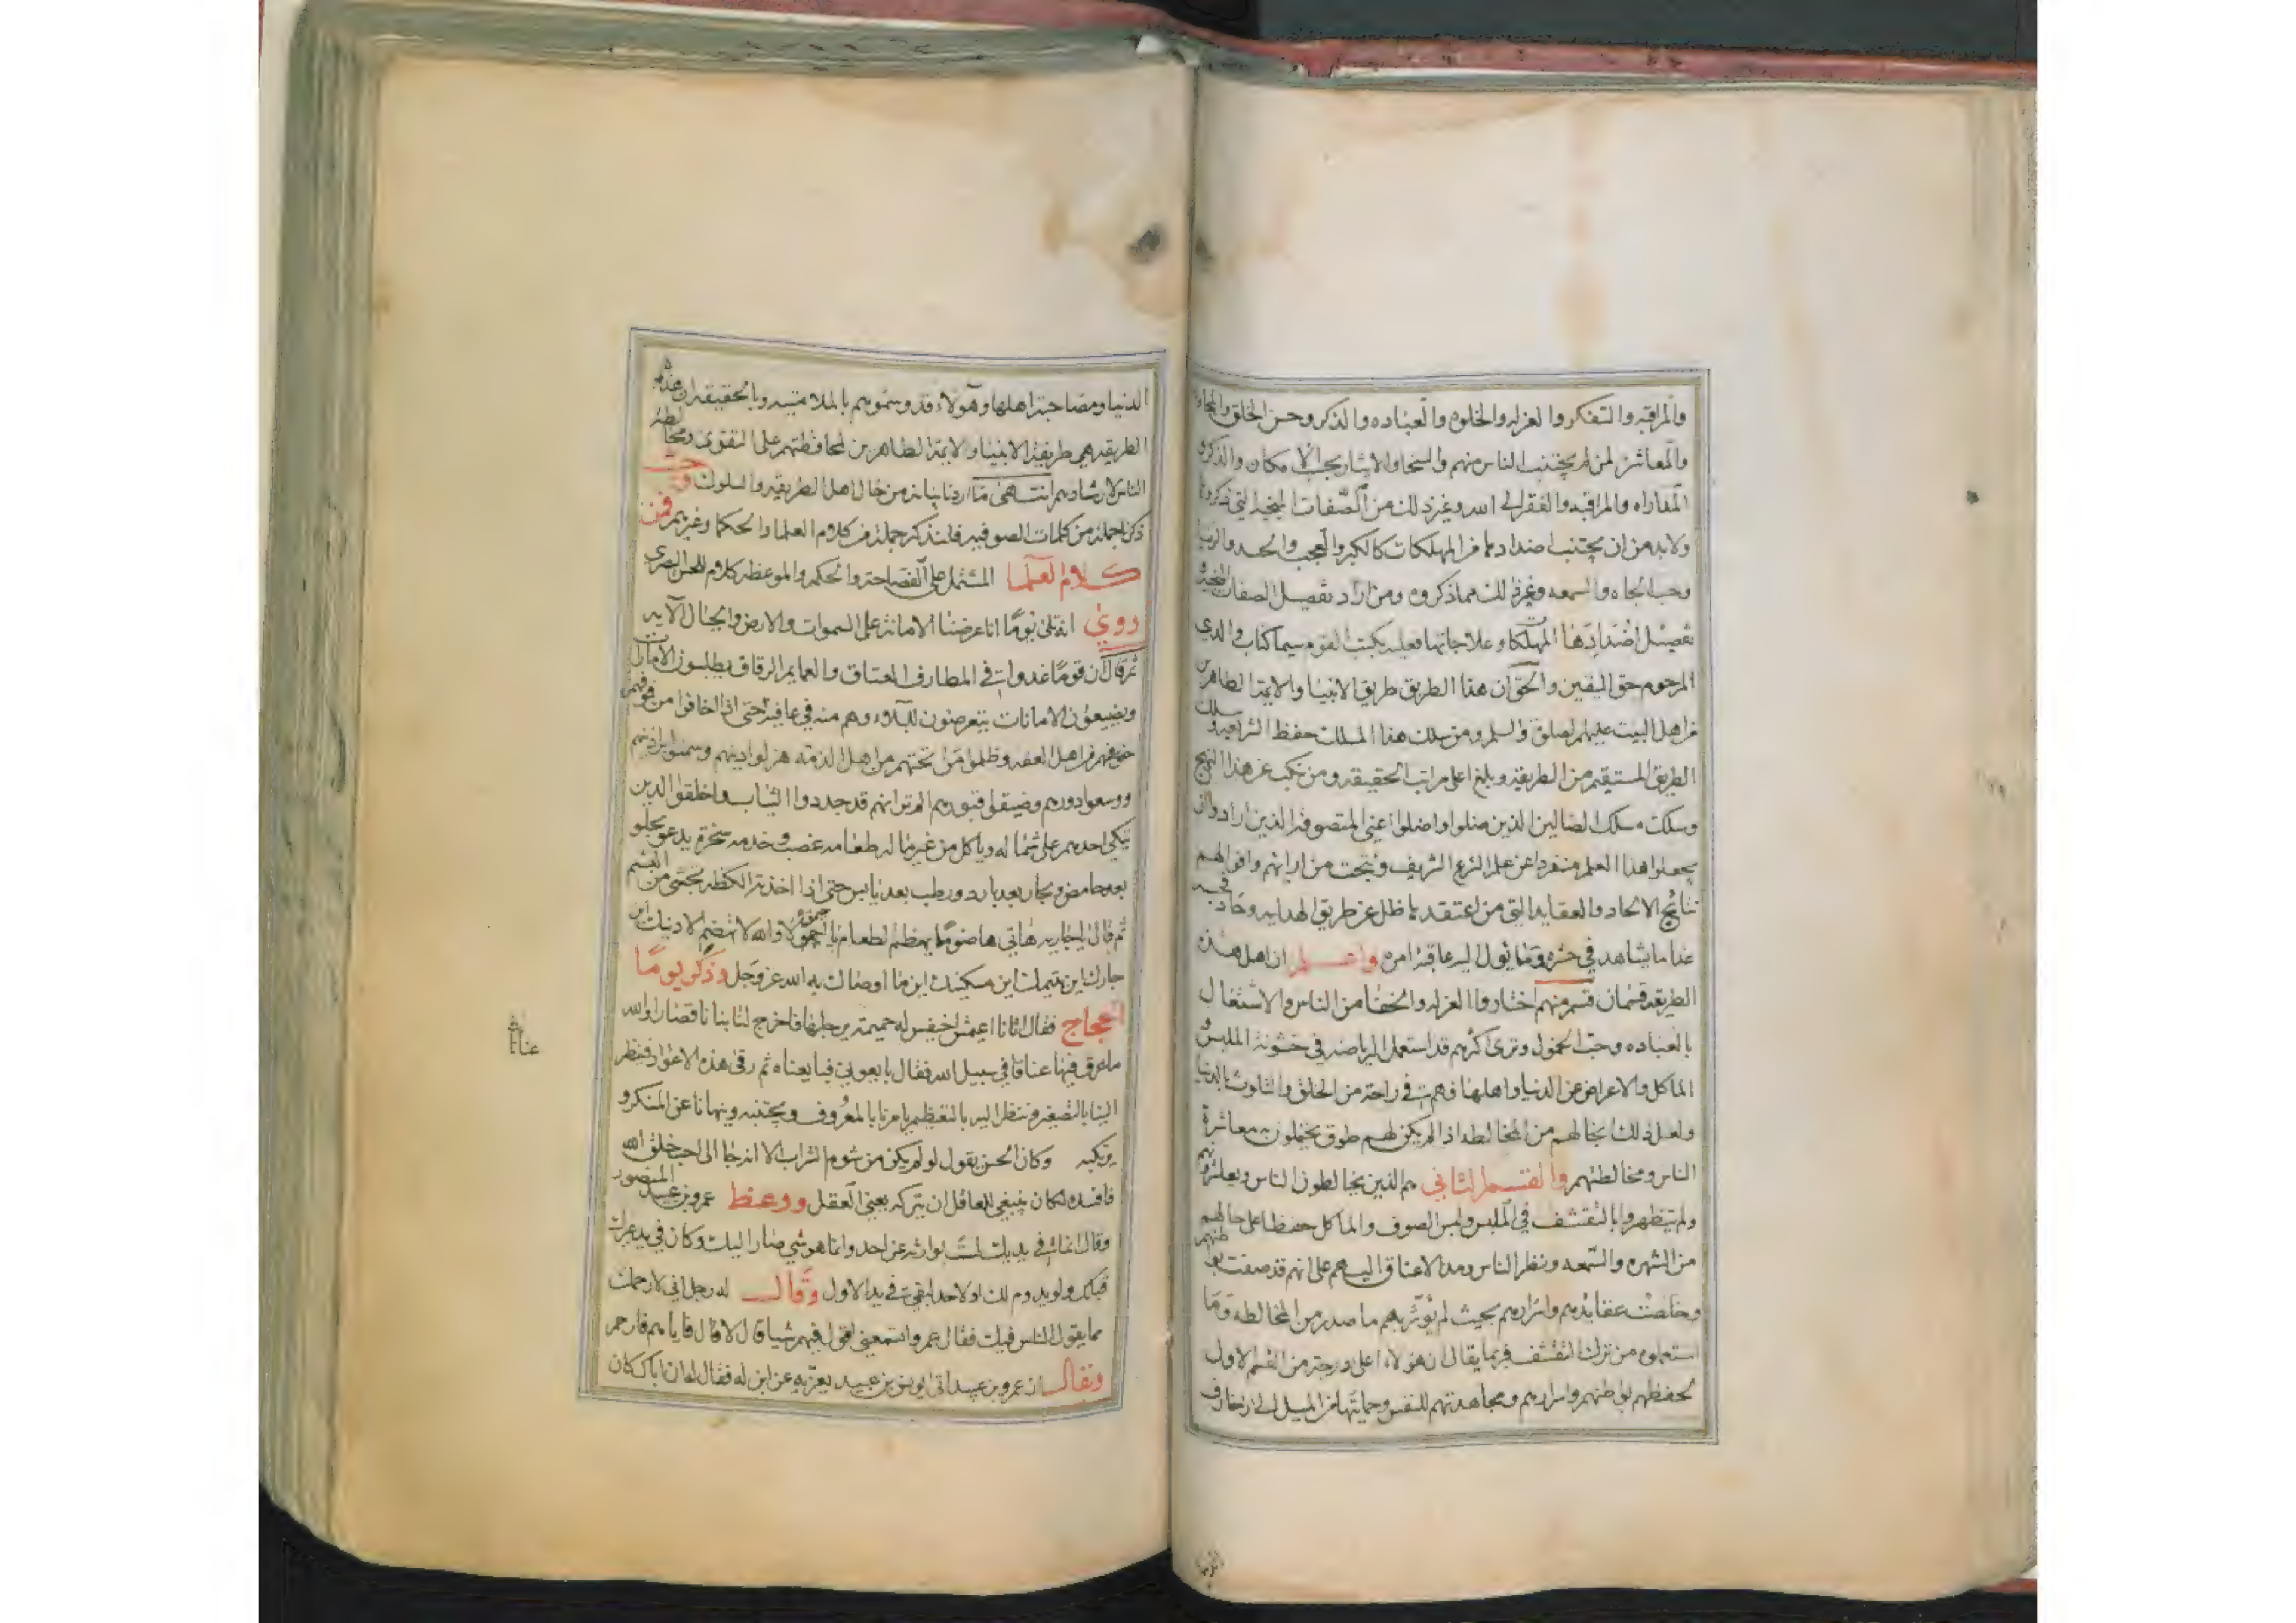 والمراقبه والتفكر والعزله والخلوه والعباده والذكر وحسن الخلق والمجا
والمعاشرة لمن لم يجتنب الناس منهم والسخا والايثار بحسب الامكان والذكر
المداراه والمراقبه والفقر الى الله وغير ذلك من الصفات الحميده التي ذكروها
ولابد من ان يجتنب اضدادها من المهلكات كالكبر والعجب والحسد والريا
وحب الجاه والسمعه وغير ذلك مما ذكروه ومن اراد تفصيل الصفات المنجيه
تفصيل اضدادها المهلكات وعلاجاتها فعليه بكتب القوم سيما كتاب والدي
المرحوم حق اليقين والحق ان هذا الطريق طريق الانبيا والايمة الطاهرين
من اهل البيت عليهم الصلوة والسلم ومن سلك هذا المسلك حفظ الشرايع وسلك
الطريق المستقيم من الطريقه وبلغ اعلى مراتب الحقيقه ومن نكب عن هذا النهج
وسلك مسلك الضالين الذين ضلوا واضلوا اعني المتصوفة الذين ارادوا ان
يجعلوا هذا العلم منفردا عن علم الشرع الشريف ونتجت من ارائهم واقوالهم
نتائج الالحاد والعقايد التي من اعتقد بها ضل عن طريق الهدايه وحاد فيجد
غدا ما يشاهد في حشره وما يؤل اليه عاقبة امره واعلم ان اهل هذه
الطريقه قسمان قسم منهم اختاروا العزله والخفا من الناس والاشتغال
بالعباده وحب الخمول وترى اكثرهم قد استعمل الرياضه في خشونة الملبس و
الماكل والاعراض عن الدنيا واهلها فهم في راحة من الخلق والتلوث بالدنيا
ولعل ذلك بخالهم من المخالطه اذا لم يكن لهم طوق يحتملون به معاشرة
الناس ومخالطتهم والقسم الثاني هم الذين يخالطون الناس ويعاشرونهم
ولم يتظهروا بالتقشف في الملبس ولبس الصوف والماكل حفظا على حالهم
من الشهره والسمعه ونظر الناس ومد الاعناق اليهم على انهم قد صفت بواطنهم
وخلصت عقايدهم واسرارهم بحيث لم يؤثر بهم ما صدر من المخالطه وما
استعملوه من ترك التقشف فربما يقال ان هولاء اعلى درجة من القسم الاول
لحفظهم بواطنهم واسرارهم ومجاهدتهم للنفس وحمايتها من الميل الى زخارف
الدنيا
الدنيا ومصاحبة اهلها وهولاء قد وسموهم بالملامتيه وبالحقيقه ان هذه
الطريقه هي طريقة الانبيا والايمة الطاهرين لمحافظتهم على التقوى ومخالطة
الناس لارشادهم انتهى ما اردنا بيانه من حال اهل الطريقه والسلوك وحيث
ذكرنا جملة من كلمات الصوفيه فلنذكر جملة من كلام العلما والحكما وغيرهم فمن
كلام العلما المشتمل على الفصاحة والحكم والموعظه كلام الحسن البصري
روي انه تلى يوما انا عرضنا الامانة على السموات والارض والجبال الآيه
ثم قال ان قوما غدوا في المطارف العتاق والعمايم الرقاق يطلبون الامارات
ويضيعون الامانات يتعرضون للبلاء وهم منه في عافية حتى اذا اخافوا من فوقهم
من اهل العفه وظلموا من تحتهم من اهل الذمه هزلوا دينهم وسمنوا براذينهم
ووسعوا دورهم وضيقوا قبورهم الم تر انهم قد جددوا الثياب واخلقوا الدين
يتكي احدهم على شماله وياكل من غير ماله طعامه غصب وخدمه سخرة يدعو بحلو
بعد حامض وبحار بعد بارد ورطب بعد يابس حتى اذا اخذته الكظه تجشى من البشم
ثم قال يا جاريه هاتي هاضوما يهضم الطعام يا احيمق لا والله لا تهضم الا دينك اين
جارك اين يتيمك اين مسكينك اين ما اوصاك به الله عز وجل وذكر يوما
الحجاج فقال اتانا اعيمش اخيفش له جميمة يرجلها فاخرج لنا بنانا قصارا والله
ما عرق فيها عنان في سبيل الله فقال بايعوني فبايعناه ثم رقى هذه الاعواد فنظر
الينا بالتصغير وننظر اليه بالتعظيم يامرنا بالمعروف ويجتنبه وينهانا عن المنكر و
يرتكبه وكان الحسن يقول لو لم يكن من شوم الشراب الا انه جا الى احب خلق الله
فافسده لكان ينبغي للعاقل ان يتركه يعني العقل ووعظ عمرو بن عبيد المنصور
وقال ان ما في يديك لست بوارثه عن احد وانما هو شي صار اليك وكان في يد غيرك
قبلك ولو يدوم لك او لاحد لبقي في يد الاول وقال له رجل اني لارحمك
مما يقول الناس فيك فقال عمرو اسمعتني اقول فيهم شيا قال لا قال فاياهم فارحم
ويقال ان عمرو بن عبيد اتى يونس بن عبيد يعزيه عن ابن له فقال له ان اباك كان
عنان